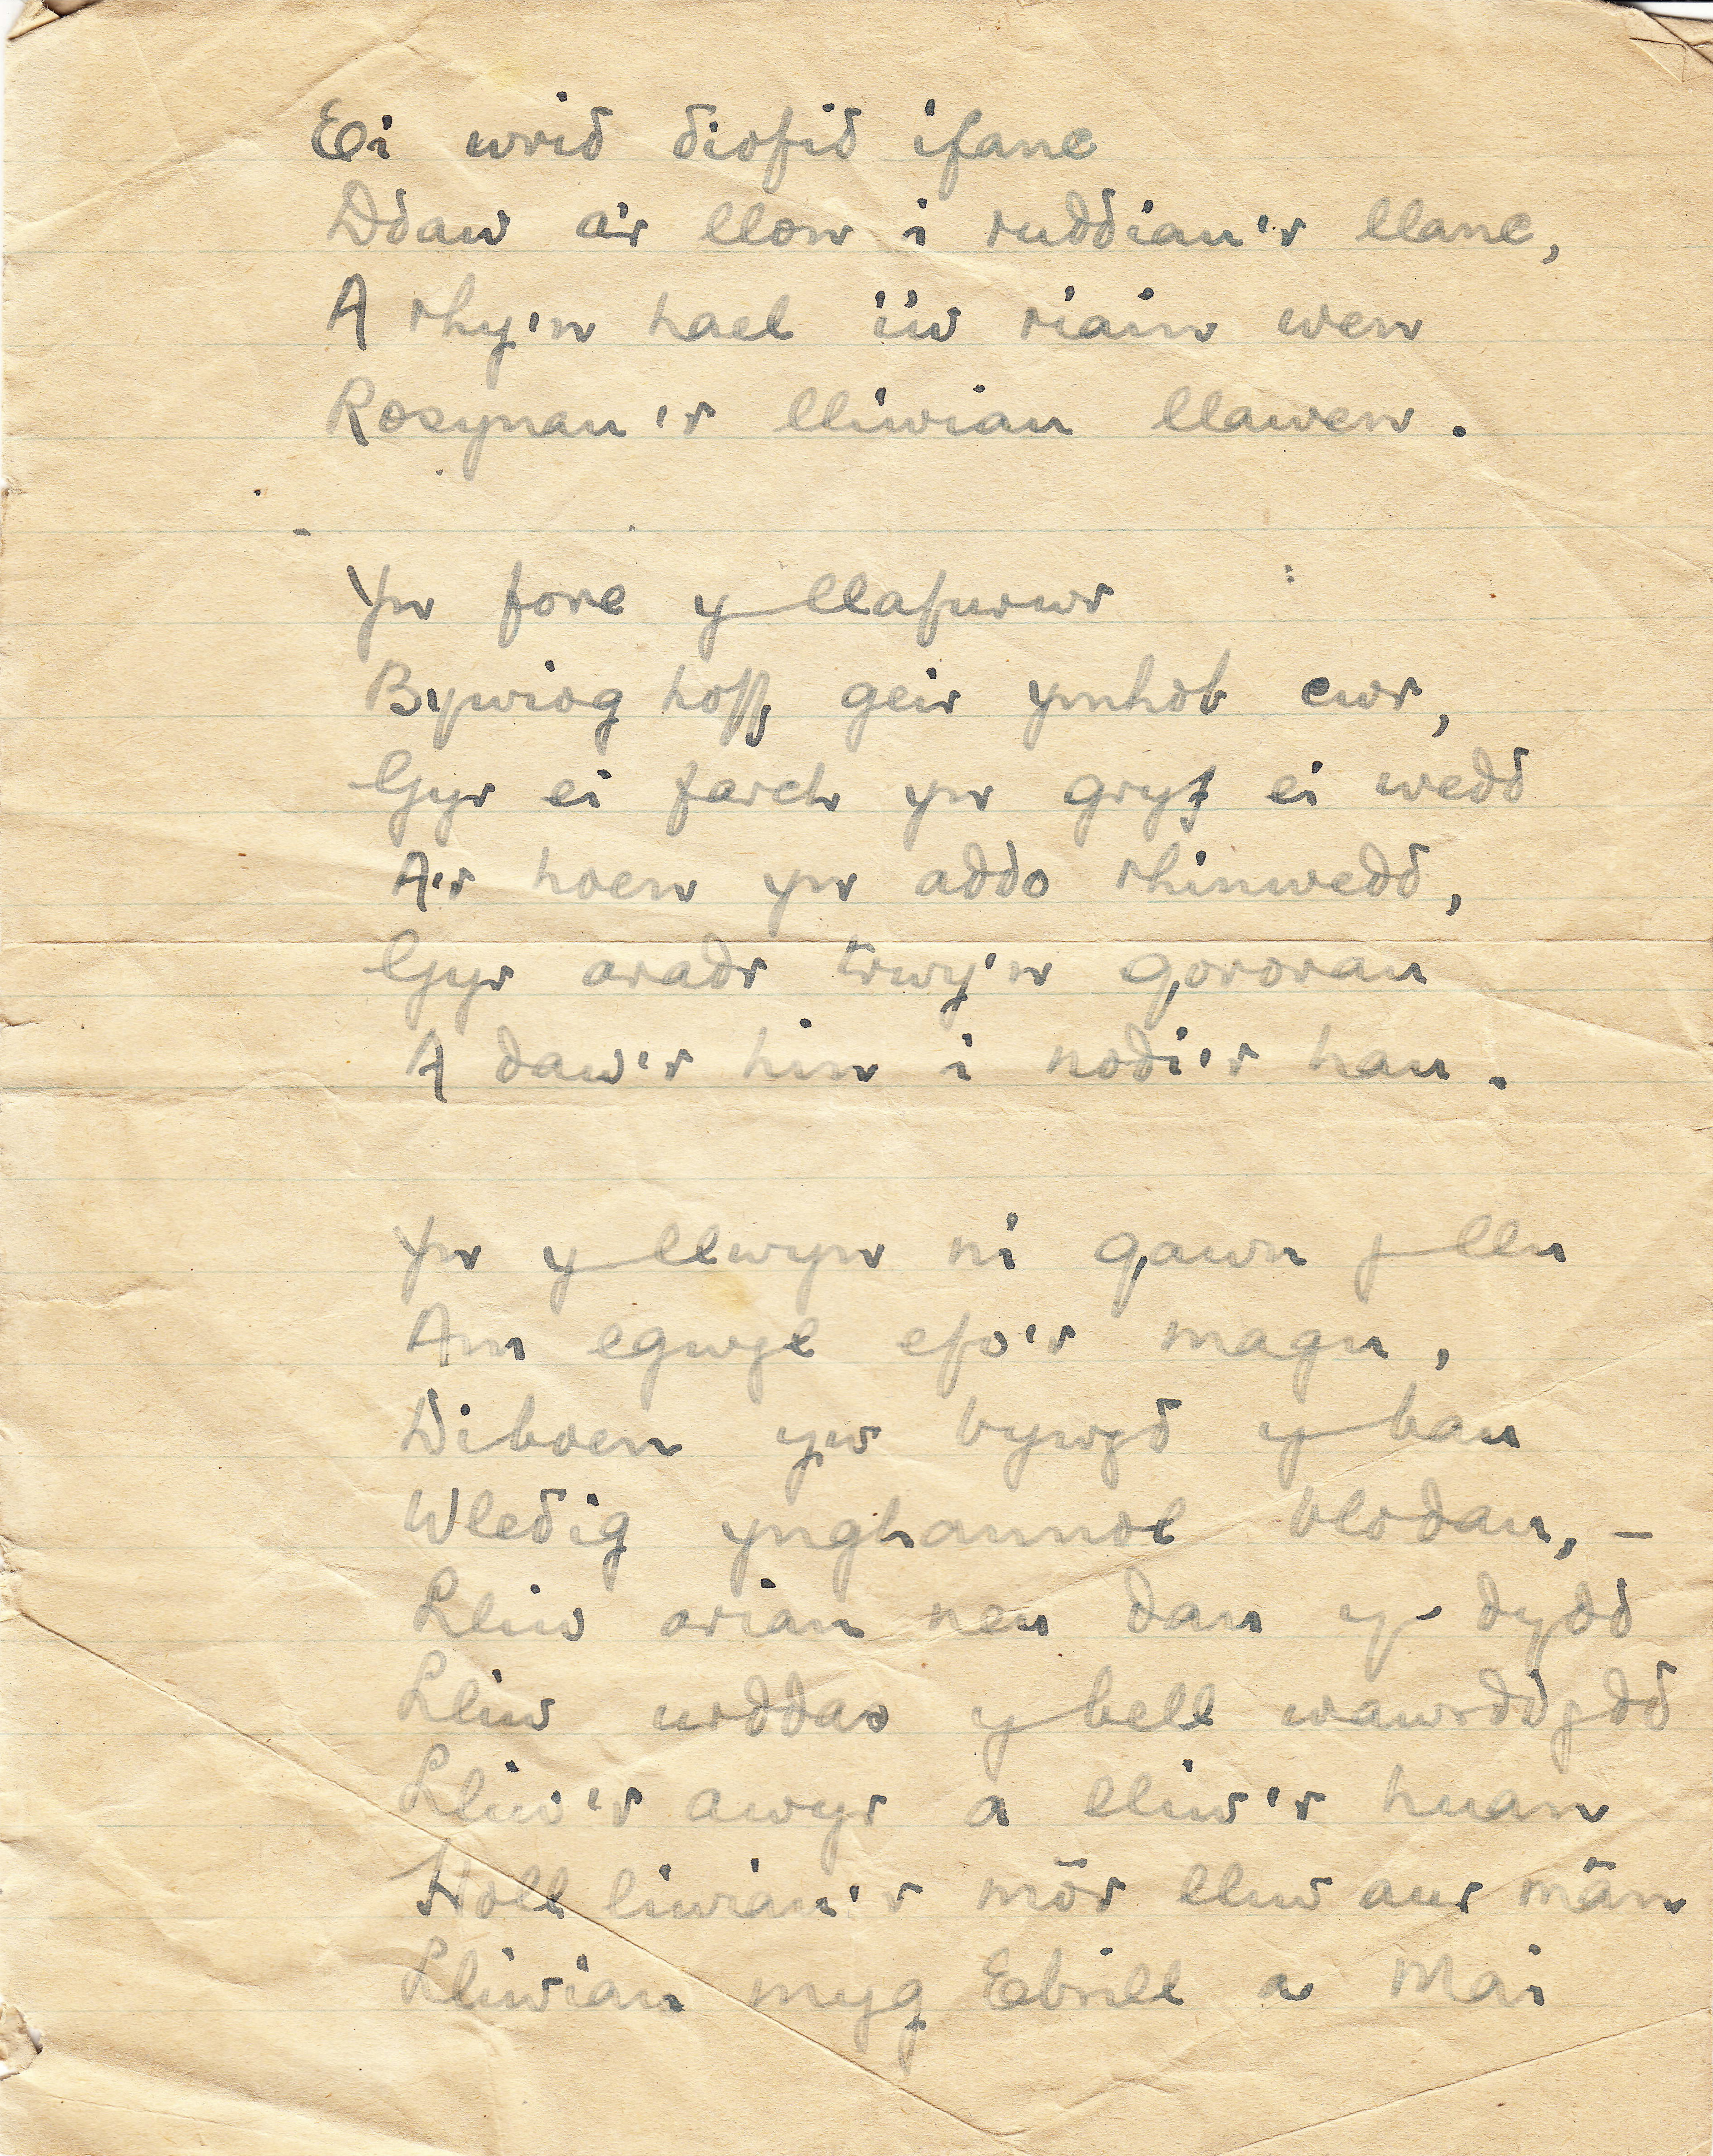 Ei wrid diofid ifanc
Ddaw a'r llon i ruddiau'r llanc,
A rhy'n hael i'w riain wen
Rosynau'r lliwiau llawen.
Yn fore y llafurwr
Bywiog hoff, geir ymhob cwr,
Gyr ei farch yn gryf ei wedd
A'r hoen yn addo rhinwedd,
Gyr aradr trwy'n gororau
A daw'r hin i nodi'r hau.
Yn y llwyn ni gawn y llu
Am egwyl efo'r magu,
Diboen yw bywyd y bau
Wledig ynghannol blodau, –
Lliw arian neu dan y dydd
Lliw urddas y bell wawrddydd
Lliw'r awyr a lliw'r huan
Holl liwiau'r môr lliw aur mân
Lliwiau myg Ebrill a Mai